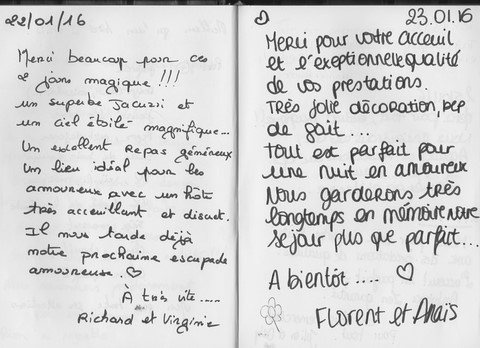 22/01/16
Merci beaucoup pour ces
2 jours magique !!!
un superbe Jacuzzi et
un ciel étoilé magnifique...
Un excellent repas généreux
Un lieu idéal pour les
amoureux avec un hôte
très acceuillant et discret.
Il nous tarde déjà
notre prochaine escapade
amoureuse. ♡
À très vite .....
Richard et Virginie
23.01.16
Merci pour votre acceuil
et l'exeptionnelle qualité
de vos prestations.
Très jolie décoration, bep
de gout ...
Tout est parfait pour
une nuit en amoureux
Nous garderons très
longtemps en mémoire notre
sejour plus que parfait...
A bientôt .... ♡
Florent et Anaïs